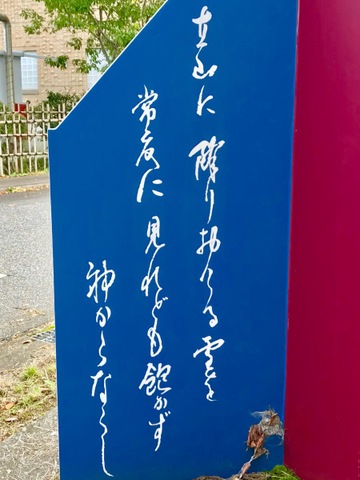 立山に降り置ける雪を
常夏に見れども飽かず
神からならし